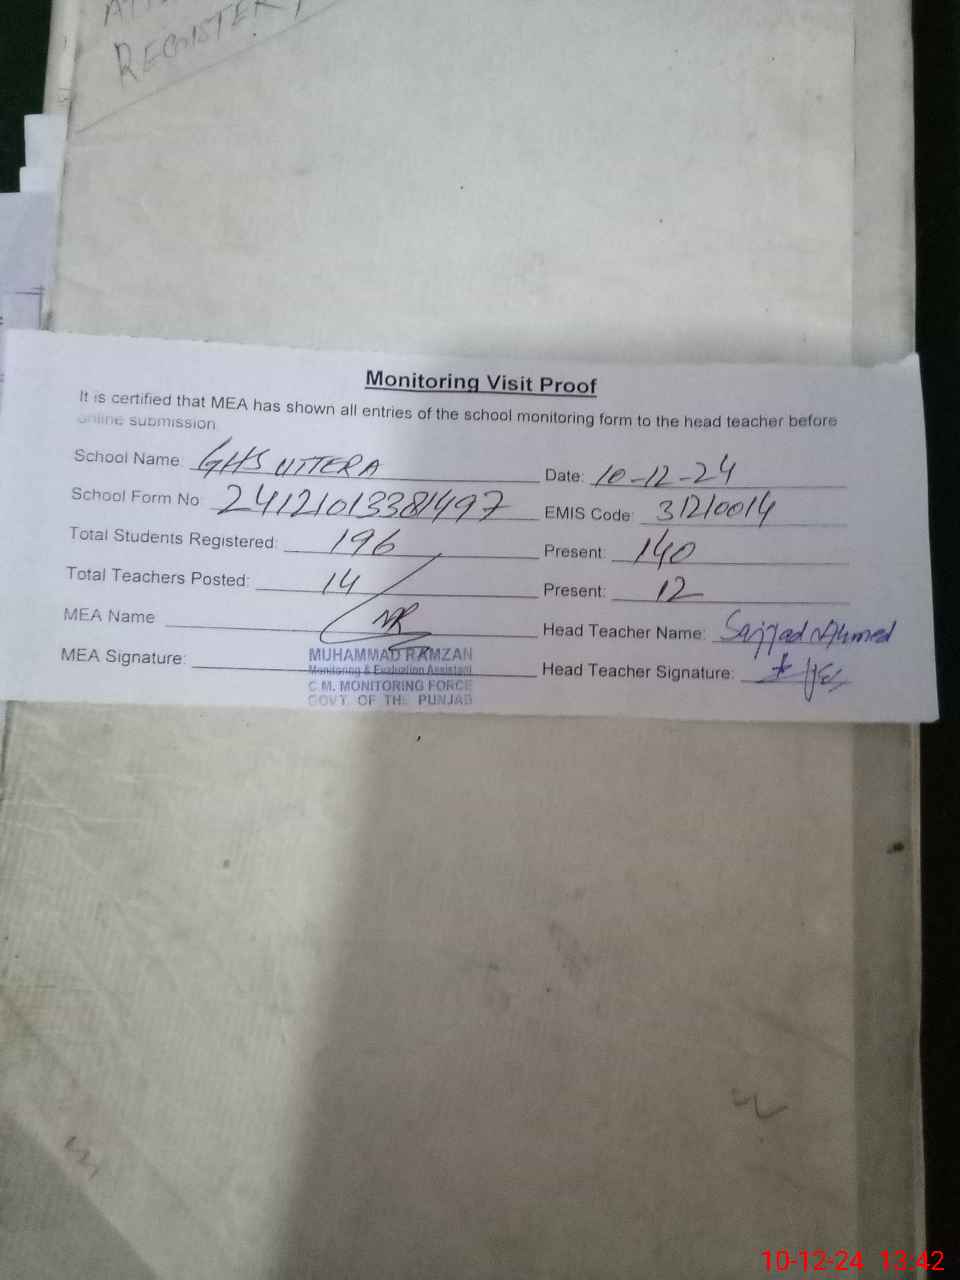 REGISTER
Monitoring Visit Proof
It is certified that MEA has shown all entries of the school monitoring form to the head teacher before
online submission
School Name: GHS UTTERA Date: 10-12-24
School Form No: 24121013381497 EMIS Code: 31210014
Total Students Registered: 196 Present: 140
Total Teachers Posted: 14 Present: 12
MEA Name Head Teacher Name: Sajjad Ahmed
MEA Signature: Head Teacher Signature:
MUHAMMAD RAMZAN
Monitoring & Evaluation Assistant
C.M. MONITORING FORCE
GOVT. OF THE PUNJAB
10-12-24 13:42